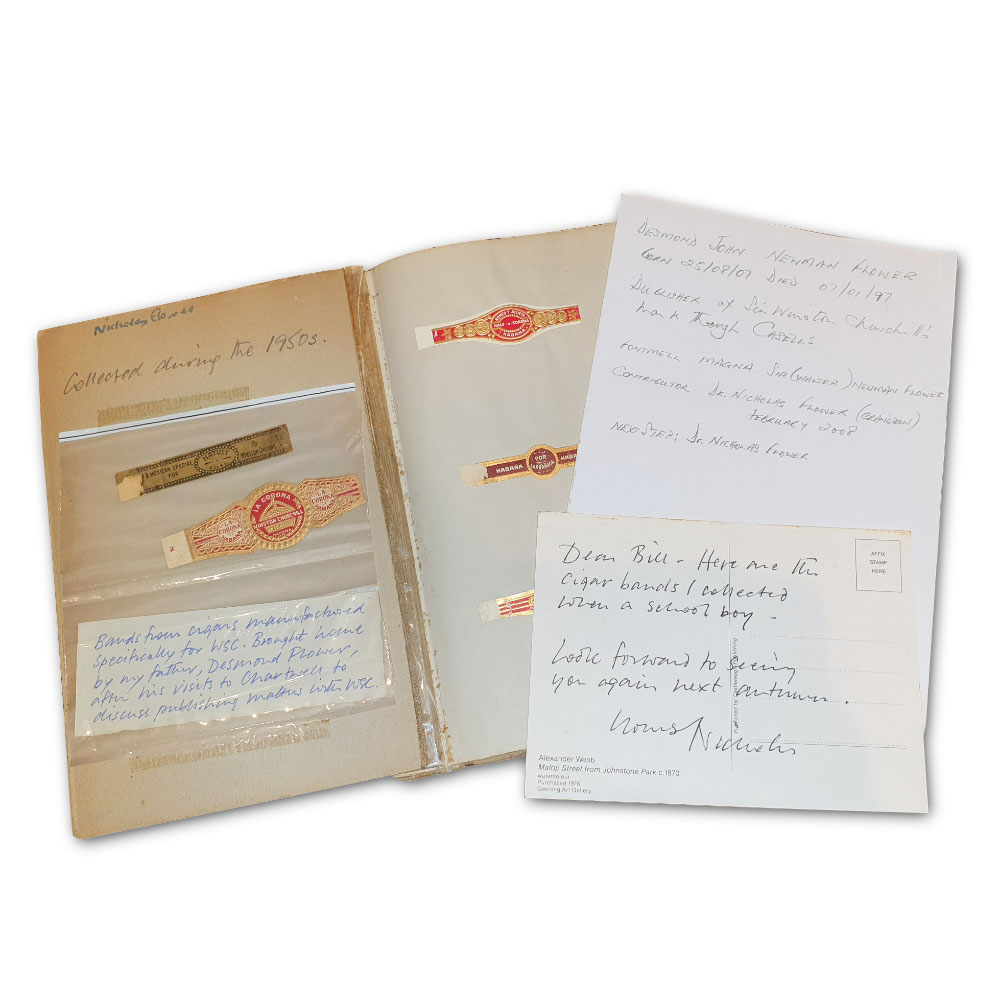 Nicholas Flower
Collected during the 1950s.
A MEXICAN SPECIAL
FOR
The
WINSTON CHURCHILL
LA
CORONA
HABANA
LA CORONA
WINSTON CHURCHILL
LA
CORONA
HABANA
Bands from cigars manufactured
specifically for WSC. Brought home
by my father, Desmond Flower,
after his visits to Chartwell to
discuss publishing matters with WSC.
HALF-A-CORONA
HABANA
HABANA
POR
LARRANAGA
HABA
DESMOND JOHN NEWMAN FLOWER.
BORN 25/08/07 DIED 07/01/97.
PUBLISHER of Sir Winston Churchill's
work Through CASELLS
FONTMELL MAGNA SIR (WALTER) NEWMAN FLOWER
CONTRIBUTOR DR. NICHOLAS FLOWER (GRANDSON)
FEBRUARY 2008
NEXT STEP: DR. NICHOLAS FLOWER
AFFIX
STAMP
HERE
Dear Bill - Here are the
cigar bands I collected
when a school boy -
Look forward to seeing
you again next autumn.
Yours Nicholas
Alexander Webb
Malop Street from Johnstone Park c.1870
watercolour
Purchased 1976
Geelong Art Gallery